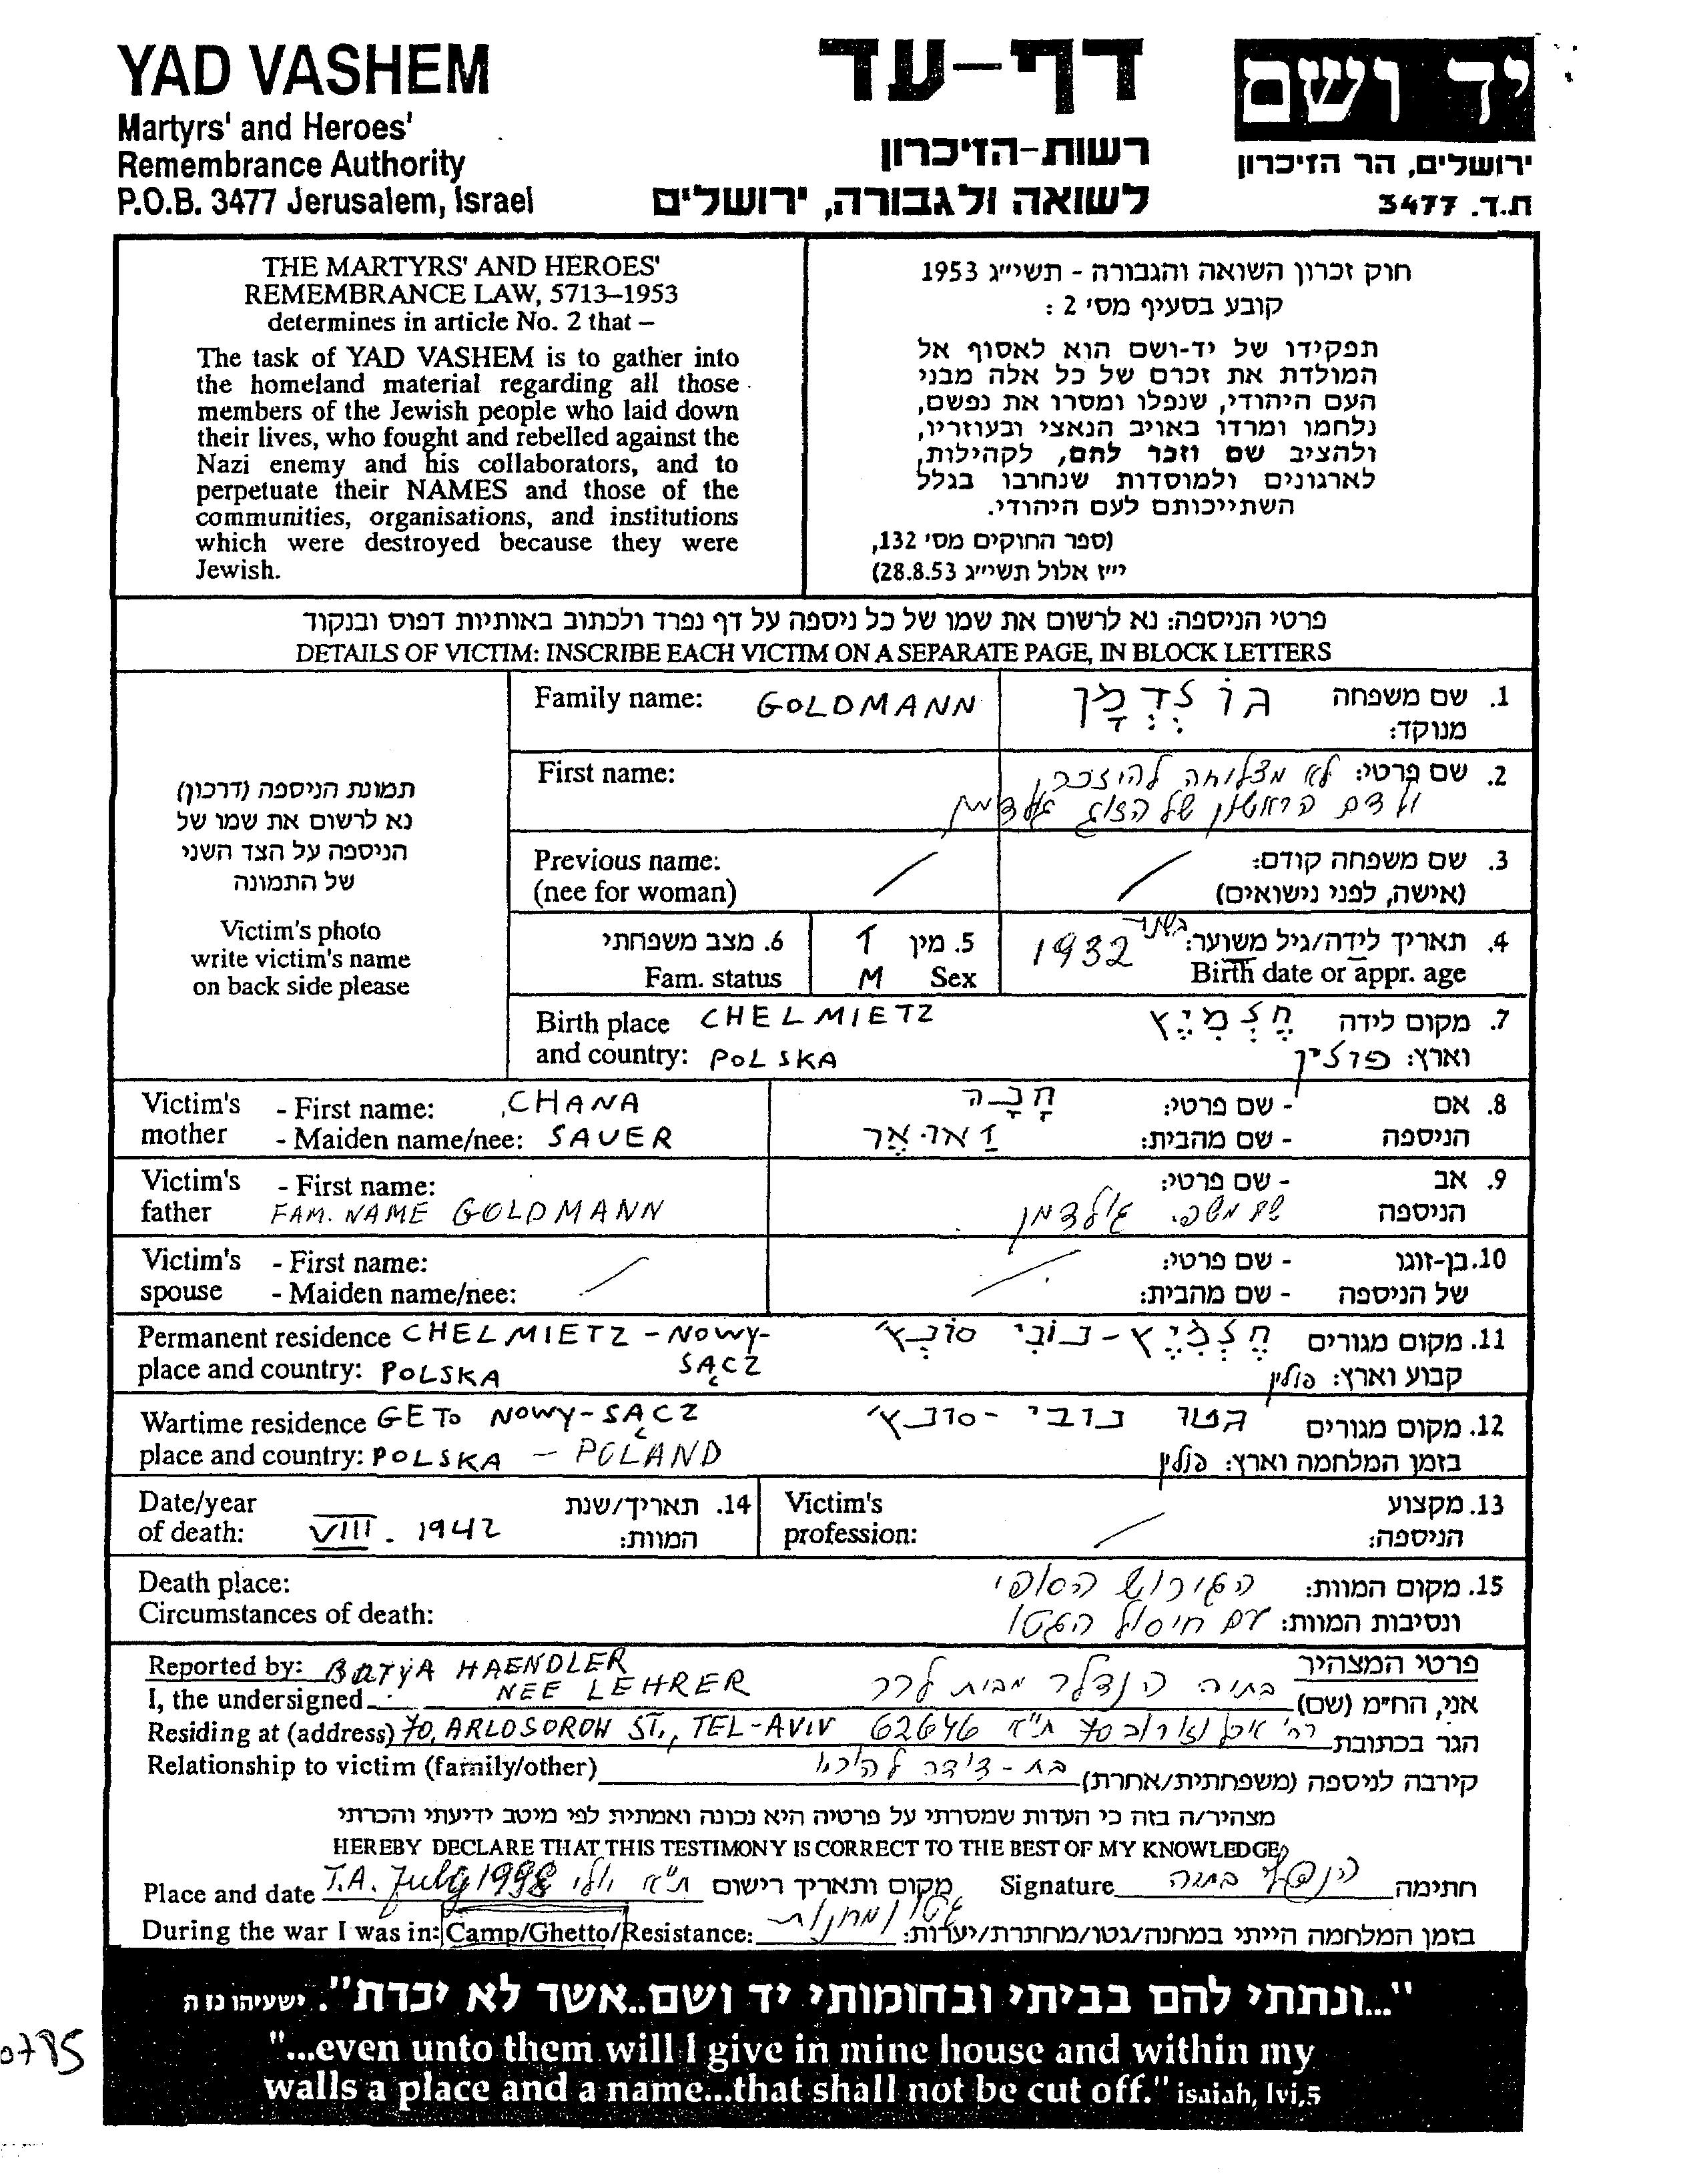 YAD VASHEM
Martyrs' and Heroes'
Remembrance Authority
P.O.B. 3477 Jerusalem, Israel
דף-עד
רשות-הזיכרון
לשואה ולגבורה, ירושלים
יד ושם
ירושלים, הר הזיכרון
ת.ד. 3477
THE MARTYRS' AND HEROES'
REMEMBRANCE LAW, 5713–1953
determines in article No. 2 that –
The task of YAD VASHEM is to gather into
the homeland material regarding all those
members of the Jewish people who laid down
their lives, who fought and rebelled against the
Nazi enemy and his collaborators, and to
perpetuate their NAMES and those of the
communities, organisations, and institutions
which were destroyed because they were
Jewish.
חוק זכרון השואה והגבורה - תשי״ג 1953
קובע בסעיף מס' 2 :
תפקידו של יד-ושם הוא לאסוף אל
המולדת את זכרם של כל אלה מבני
העם היהודי, שנפלו ומסרו את נפשם,
נלחמו ומרדו באויב הנאצי ובעוזריו,
ולהציב שם וזכר להם, לקהילות,
לארגונים ולמוסדות שנחרבו בגלל
השתייכותם לעם היהודי.
(ספר החוקים מס' 132,
י״ז אלול תשי״ג 28.8.53)
פרטי הניספה: נא לרשום את שמו של כל ניספה על דף נפרד ולכתוב באותיות דפוס ובנקוד
DETAILS OF VICTIM: INSCRIBE EACH VICTIM ON A SEPARATE PAGE, IN BLOCK LETTERS
תמונת הניספה (דרכון)
נא לרשום את שמו של
הניספה על הצד השני
של התמונה
Victim's photo
write victim's name
on back side please
Family name: GOLDMANN
1. שם משפחה גולְדְמָן
מנוקד:
First name:
2. שם פרטי: לא מצליחה להיזכר,
ילדם הראשון של הזוג גולדמן
Previous name: /
(nee for woman)
3. שם משפחה קודם: /
(אישה, לפני נישואים)
4. תאריך לידה/גיל משוער: בשנת 1932
Birth date or appr. age
5. מין ז
Sex M
6. מצב משפחתי
Fam. status
Birth place CHELMIETZ
and country: POLSKA
7. מקום לידה חֶלְמִיֶץ
וארץ: פולין
Victim's - First name: CHANA
mother - Maiden name/nee: SAUER
8. אם - שם פרטי: חָנָה
הניספה - שם מהבית: זַאוּאֶר
Victim's - First name:
father FAM. NAME GOLDMANN
9. אב - שם פרטי:
הניספה שם משפ. גולדמן
Victim's - First name: /
spouse - Maiden name/nee:
10. בן-זוגו - שם פרטי: /
של הניספה - שם מהבית:
Permanent residence CHELMIETZ - NOWY-
place and country: POLSKA SĄCZ
11. מקום מגורים חֶלְמִיֶץ - נובי סונץ'
קבוע וארץ: פולין
Wartime residence GETO NOWY-SĄCZ
place and country: POLSKA – POLAND
12. מקום מגורים גטו נובי - סונץ'
בזמן המלחמה וארץ: פולין
Date/year
of death: VIII. 1942
14. תאריך/שנת
המוות:
Victim's
profession: /
13. מקצוע
הניספה:
Death place:
Circumstances of death:
15. מקום המוות: הגירוש הסופי
ונסיבות המוות: עם חיסול הגטו
Reported by: BATYA HAENDLER
I, the undersigned NEE LEHRER
פרטי המצהיר
אני, הח״מ (שם) בתיה הנדלר מבית לרר
Residing at (address) 70, ARLOSOROW ST., TEL-AVIV 62646
הגר בכתובת רח' ארלוזורוב 70 ת״א
Relationship to victim (family/other)
קירבה לניספה (משפחתית/אחרת) בת-דודה
מצהיר/ה בזה כי העדות שמסרתי על פרטיה היא נכונה ואמתית לפי מיטב ידיעתי והכרתי
HEREBY DECLARE THAT THIS TESTIMONY IS CORRECT TO THE BEST OF MY KNOWLEDGE
Place and date T.A. July 1998 ת״א יולי מקום ותאריך רישום
Signature הנדלר בתיה חתימה
During the war I was in: Camp/Ghetto/Resistance:
בזמן המלחמה הייתי במחנה/גטו/מחתרת/יערות: גטו ומחנות
"...ונתתי להם בביתי ובחומותי יד ושם..אשר לא יכרת". ישעיהו נו ה
"...even unto them will I give in mine house and within my
walls a place and a name...that shall not be cut off." isaiah, lvi,5